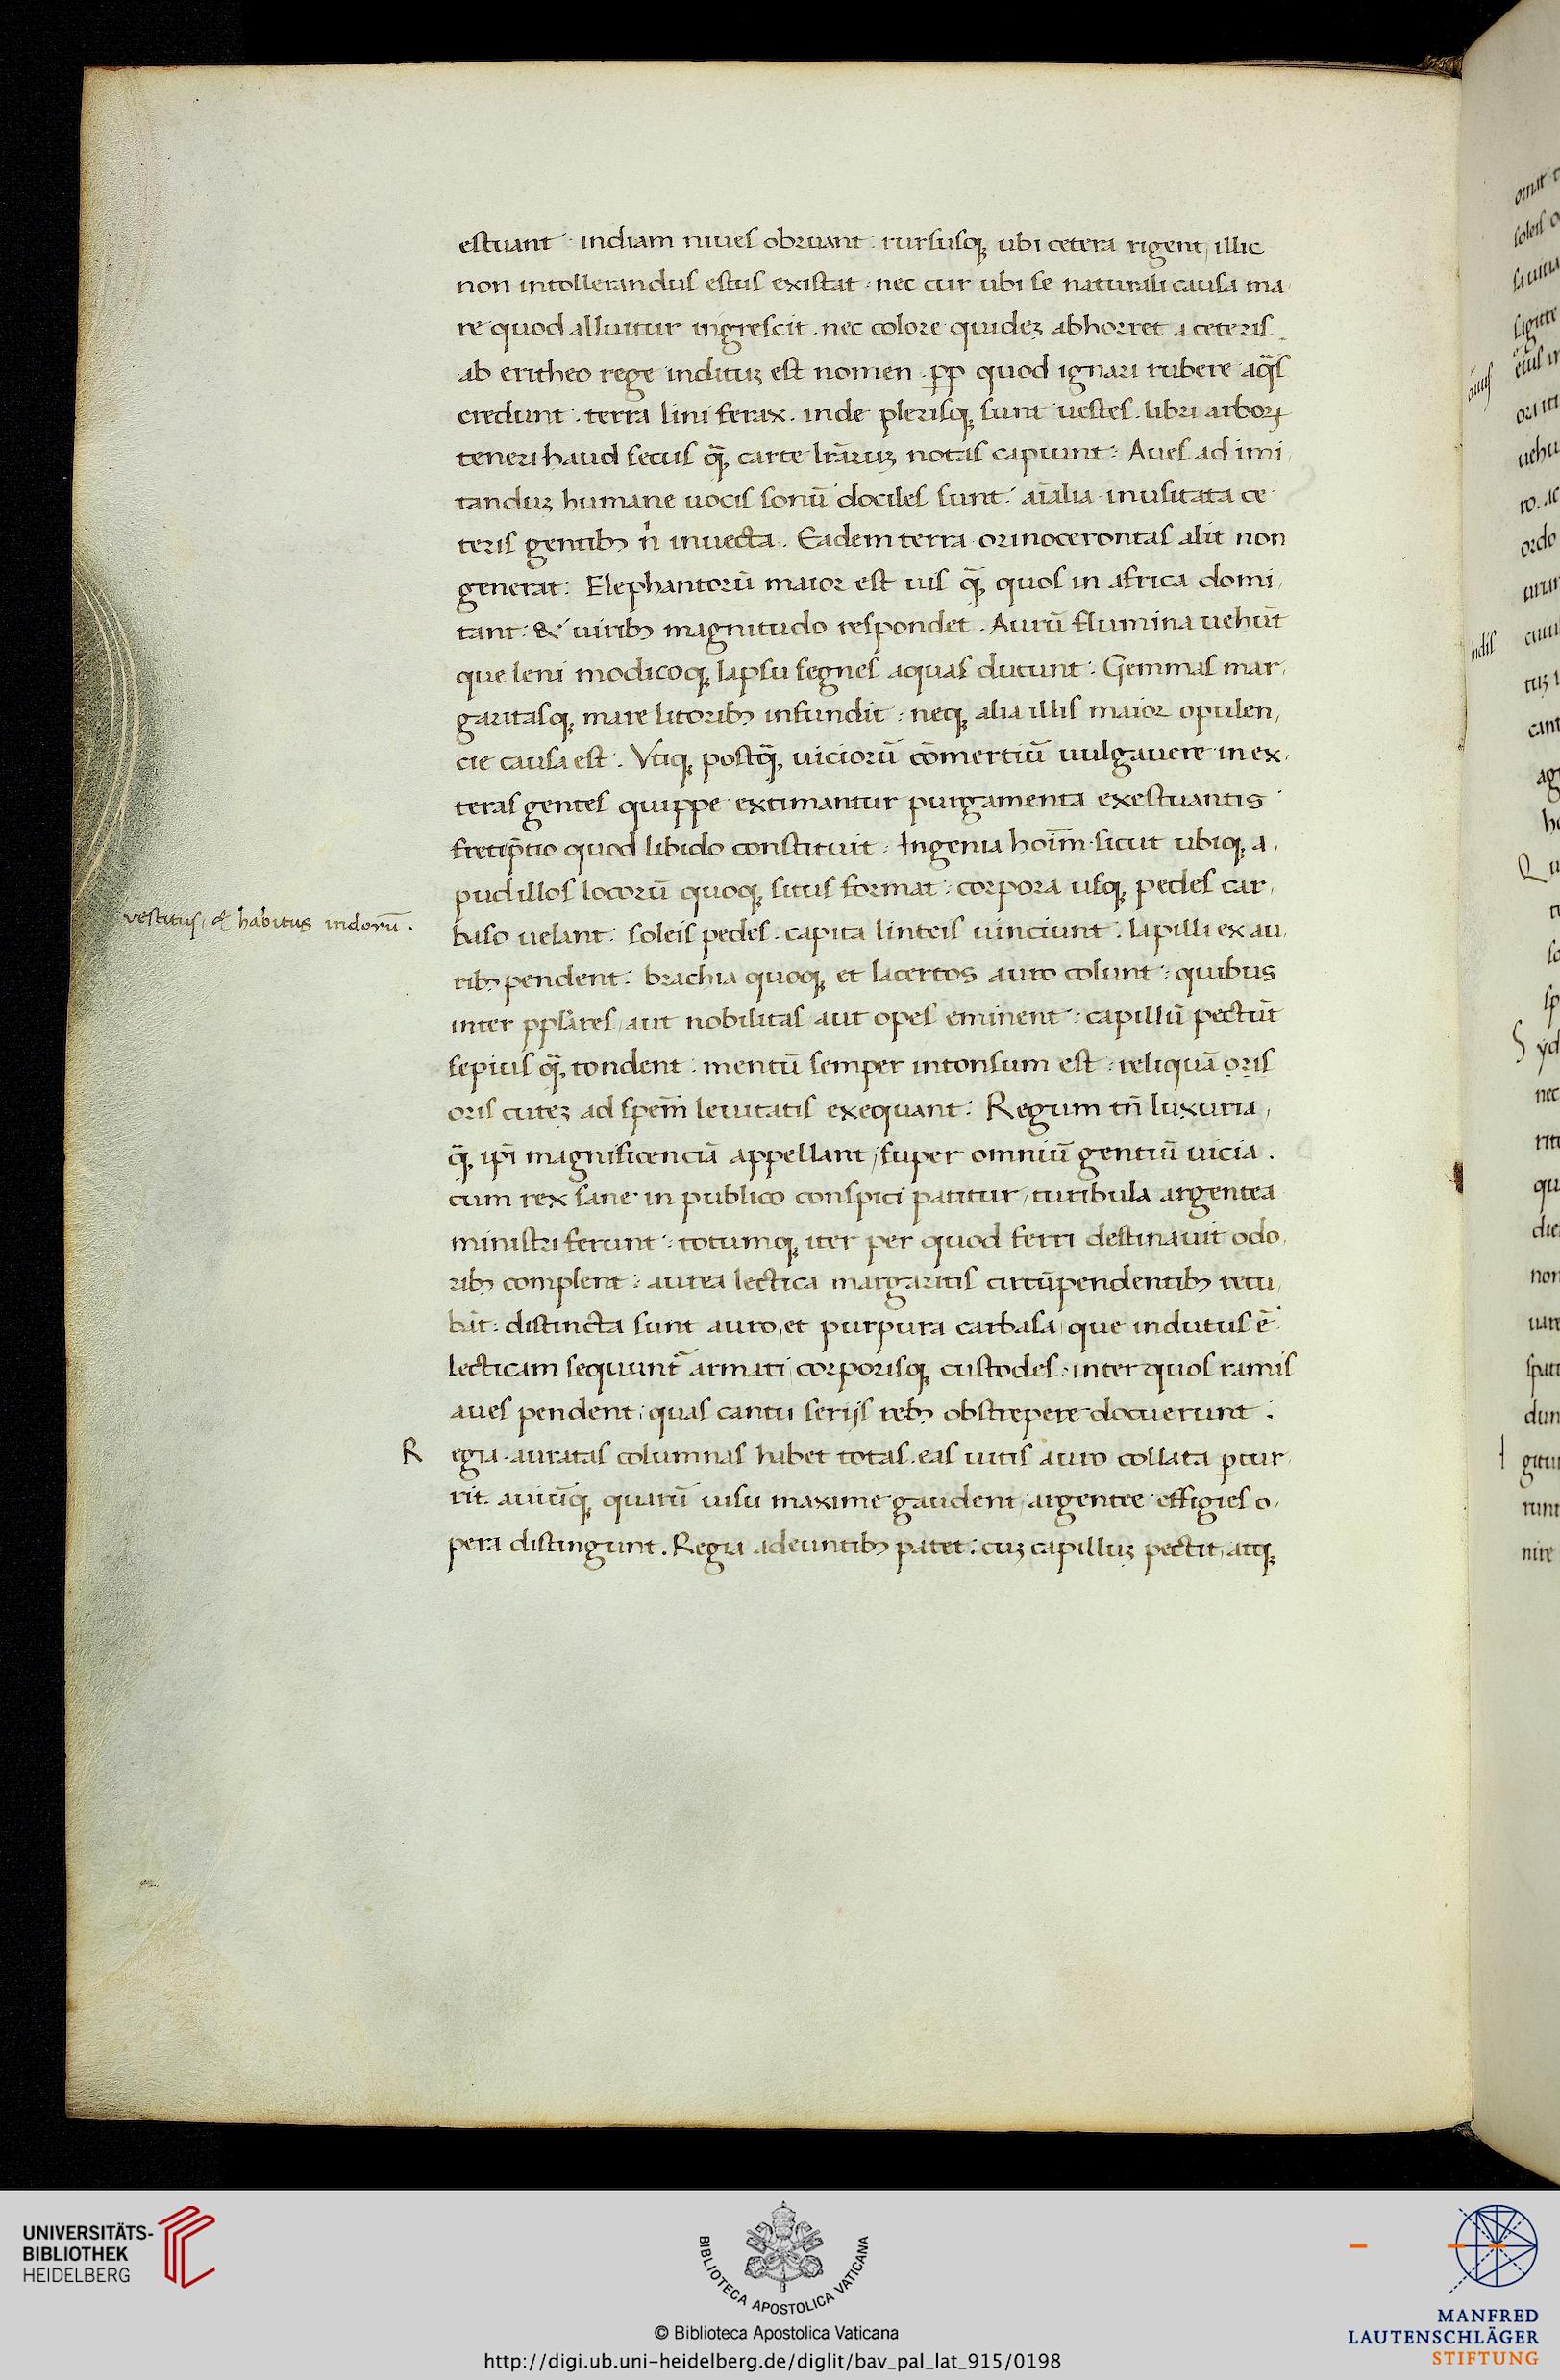 estuant · indiam niues obruant : rursusq; ubi cetera rigent, illic
non intollerandus estus existat : nec cur ubi se naturali causa ma
re quod alluitur ingrescit . nec colore quidez abhorret a ceteris .
ab eritheo rege indituz est nomen . pp quod ignari rubere aq̃s
credunt . terra lini ferax . inde plerisq; sunt uestes . libri arboꝝ
teneri haud secus q̃; carte lr̃aruz notas capiunt : Aues ad imi
tanduz humane uocis sonū dociles sunt . aĩalia inusitata ce
teris gentib; ñ inuecta . Eadem terra orinocerontas alit non
generat : Elephantorū maior est uis q̃; quos in africa domi
tant : & uirib; magnitudo respondet . Aurū flumina uehūt
que leni modicoq; lapsu segnes aquas ducunt : Gemmas mar
garitasq; mare litorib; infundit : neq; alia illis maior opulen
cie causa est . Vtiq; postq̃; uiciorū cōmertiū uulgauere in ex
teras gentes quippe extimantur purgamenta exestuantis
freti p̃tio quod libido constituit : Ingenia hoīm sicut ubiq; a
pud illos locorū quoq; situs format : corpora usq; pedes car
vestitus, & habitus indorū .
baso uelant : soleis pedes . capita linteis uinciunt . lapilli ex au
rib; pendent : brachia quoq; et lacertos auro colunt : quibus
inter pplāres, aut nobilitas aut opes eminent : capillū pectūt
sepius q̃; tondent : mentū semper intonsum est : reliquā oris
oris cutez ad spem̄ leuitatis exequant : Regum tñ luxuria,
q̃; ip̄i magnificenciā appellant, super omniū gentiū uicia .
cum rex sane in publico conspici patitur, turibula argentea
ministri ferunt : totumq; iter per quod ferri destinauit odo
rib; complent : aurea lectica margaritis circūpendentib; recu
bāt : distincta sunt auro, et purpura carbasa que indutus ē
lecticam sequunt̃ armati corporisq; custodes : inter quos ramis
aues pendent : quas cantu serijs reb; obstrepere docuerunt :
R egia . auratas columnas habet totas . eas uitis auro collata ꝑcur
rit . auiūq; quarū uisu maxime gaudent, argentee effigies o
pera distingunt . Regia adeuntib; patet : cuz capilluz pectit, atq;
UNIVERSITÄTS-
BIBLIOTHEK
HEIDELBERG
BIBLIOTECA APOSTOLICA VATICANA
© Biblioteca Apostolica Vaticana
http://digi.ub.uni-heidelberg.de/diglit/bav_pal_lat_915/0198
MANFRED
LAUTENSCHLÄGER
STIFTUNG